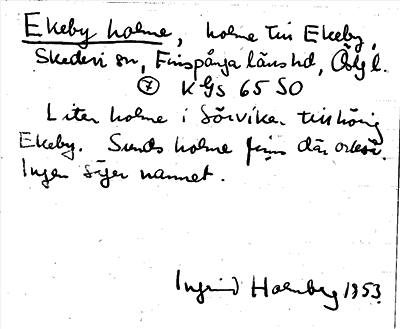 Ekeby holme, holme till Ekeby,
Skedevi sn, Finspånga läns hd, Östg l.
7 KGS 65 SO
Liten holme i Sörviken tillhörig
Ekeby. Sunds holme finns där också.
Ingen säger namnet.
Ingrid Holmberg 1953.